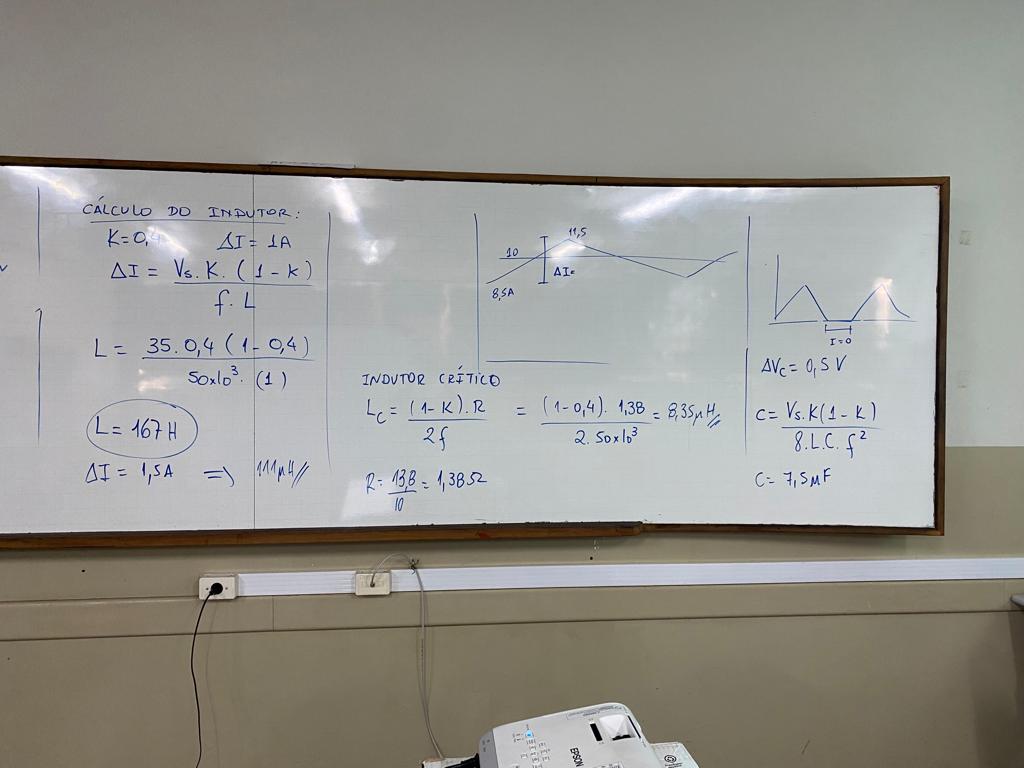 CÁLCULO DO INDUTOR:
K=0,4 ΔI = 1A
ΔI = Vs.K.(1-K) / f.L
L = 35.0,4(1-0,4) / 50x10³.(1)
L = 167H
ΔI = 1,5A => 111μH//
11,5
10
ΔI=
8,5A
INDUTOR CRÍTICO
Lc = (1-K).R / 2f = (1-0,4).1,38 / 2.50x10³ = 8,35μH//
R = 13,8 / 10 = 1,38Ω
I=0
ΔVc = 0,5V
C = Vs.K(1-K) / 8.L.C.f²
C = 7,5μF
EPSON